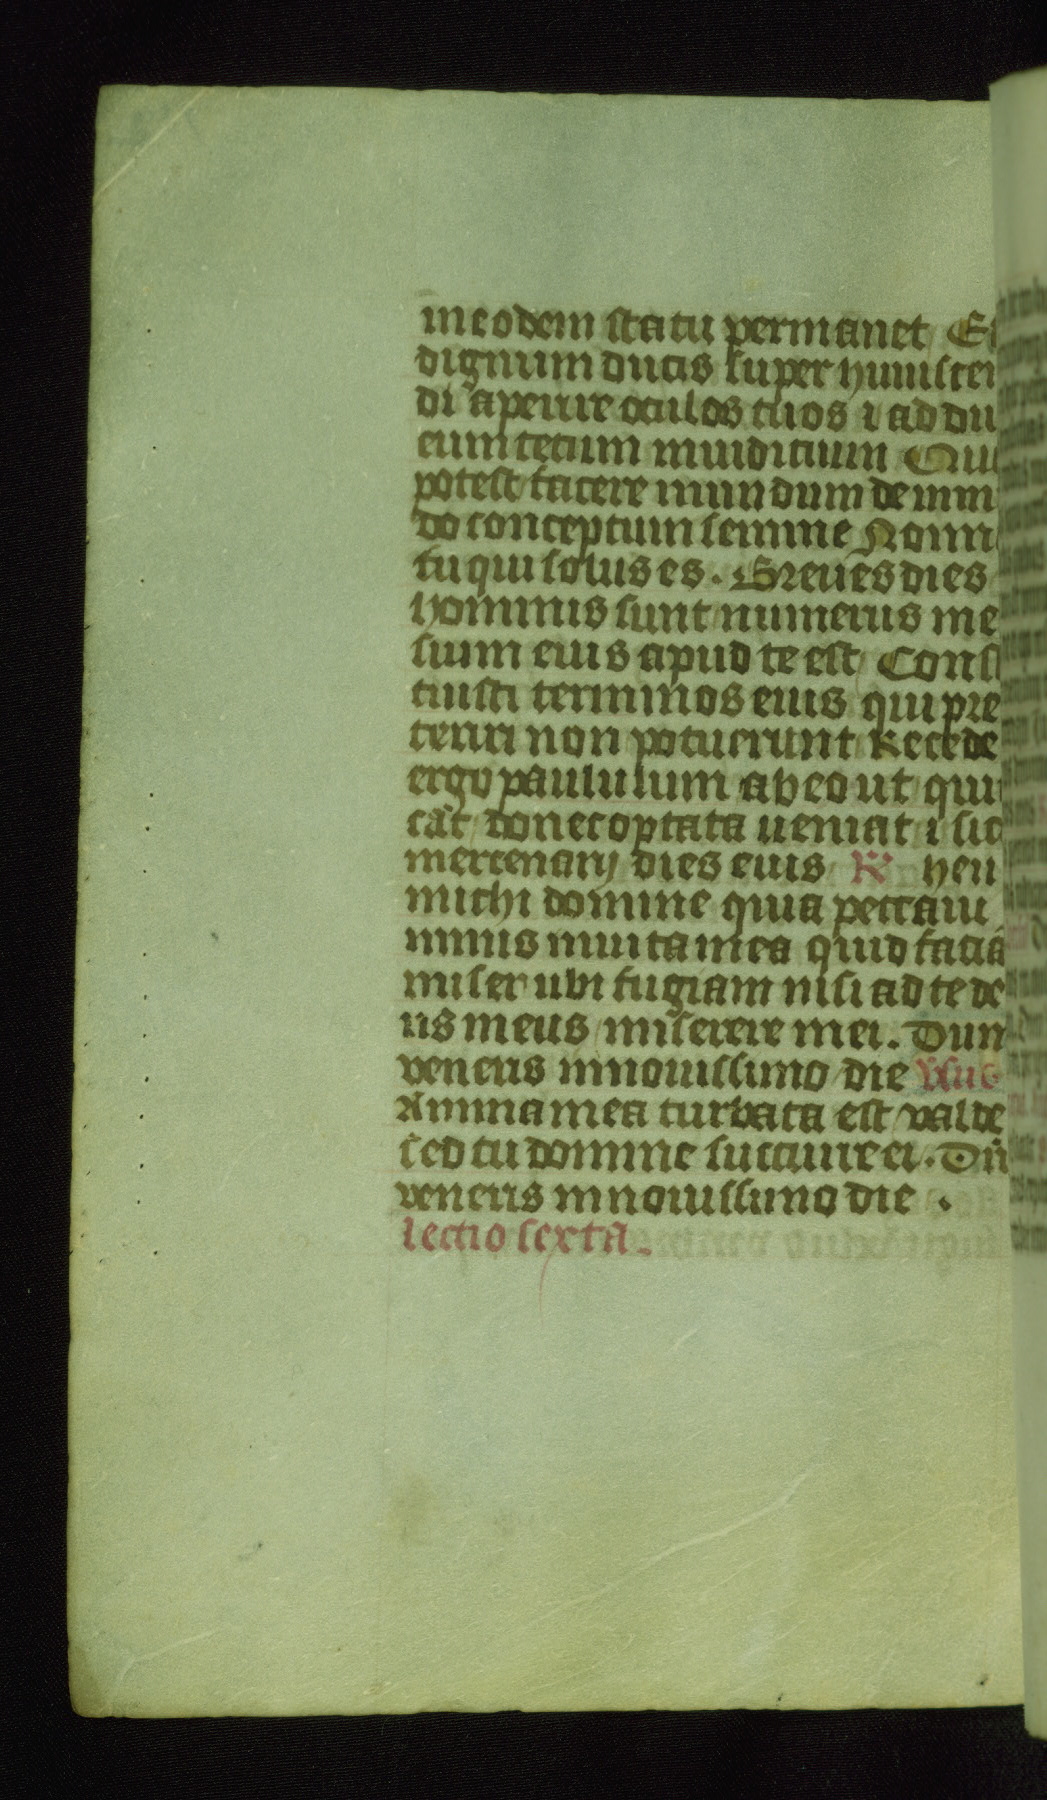 in eodem statu permanet Et
dignum ducis super huiuscei
di aperire oculos tuos ⁊ addu
eum tecum in iudicium Qui
potest facere mundum de inmun
do conceptum semine Nonn
tu qui solus es. Breues dies
hominis sunt numerus me
sium eius apud te est Consti
tuisti terminos eius qui pre
teriri non potuerunt Recede
ergo paululum ab eo ut qui
cāt donec optata ueniat ⁊ sic
mercenarij dies eius R heu
michi domine quia peccaui
nimis in uita mea quid faciā
miser ubi fugiam nisi ad te de
us meus miserere mei. Dum
veneris in nouissimo die
Anima mea turbata est valde
sed tu domine succurre ei. Dū
veneris in nouissimo die .
lectio sexta.